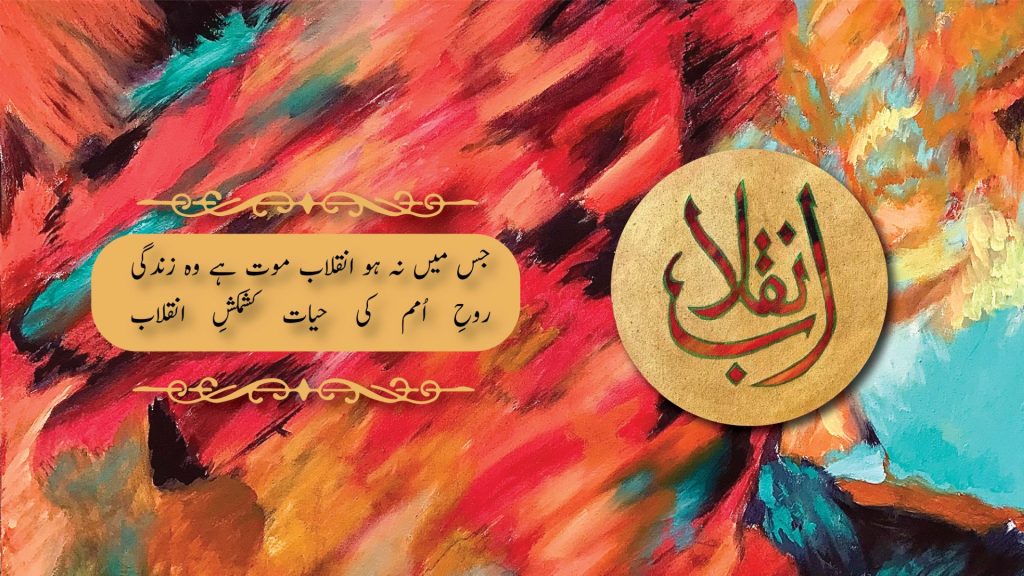 جس میں نہ ہو انقلاب موت ہے وہ زندگی
روحِ اُمم کی حیات کشمکشِ انقلاب
انقلاب